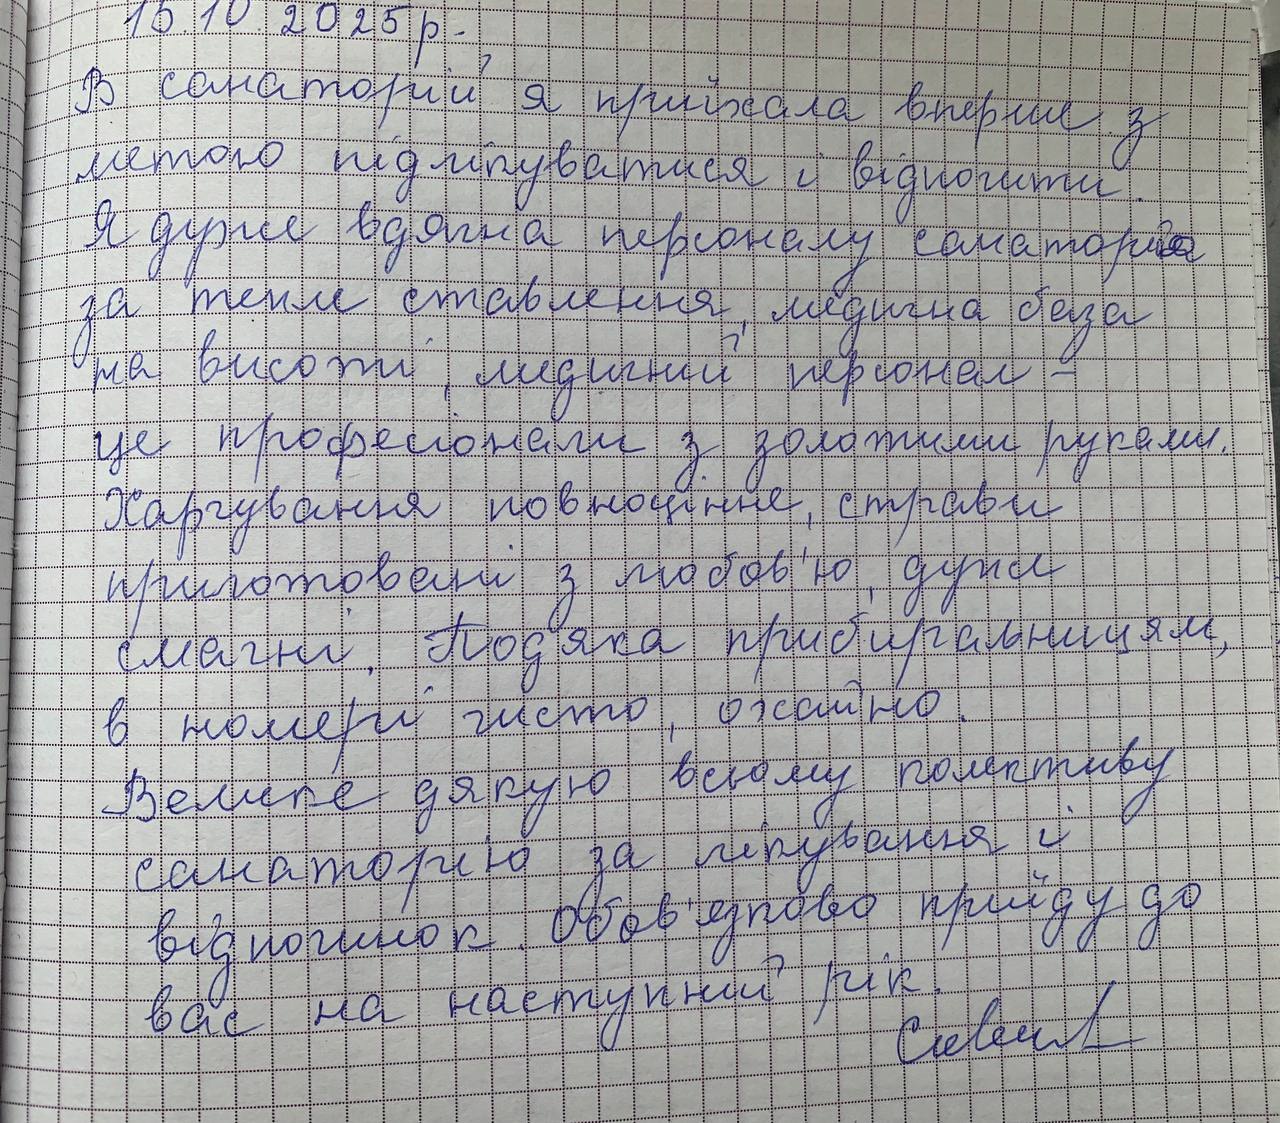 15.10.2025р.
В санаторій я приїхала вперше з
метою підлікуватися і відпочити.
Я дуже вдячна персоналу санаторія
за тепле ставлення, медична база
на висоті, медичний персонал –
це професіонали з золотими руками.
Харчування повноцінне, страви
приготовані з любов'ю, дуже
смачні. Подяка прибиральницям,
в номері чисто, охайно.
Велике дякую всьому колективу
санаторію за лікування і
відпочинок. Обов'язково прийду до
вас на наступний рік.